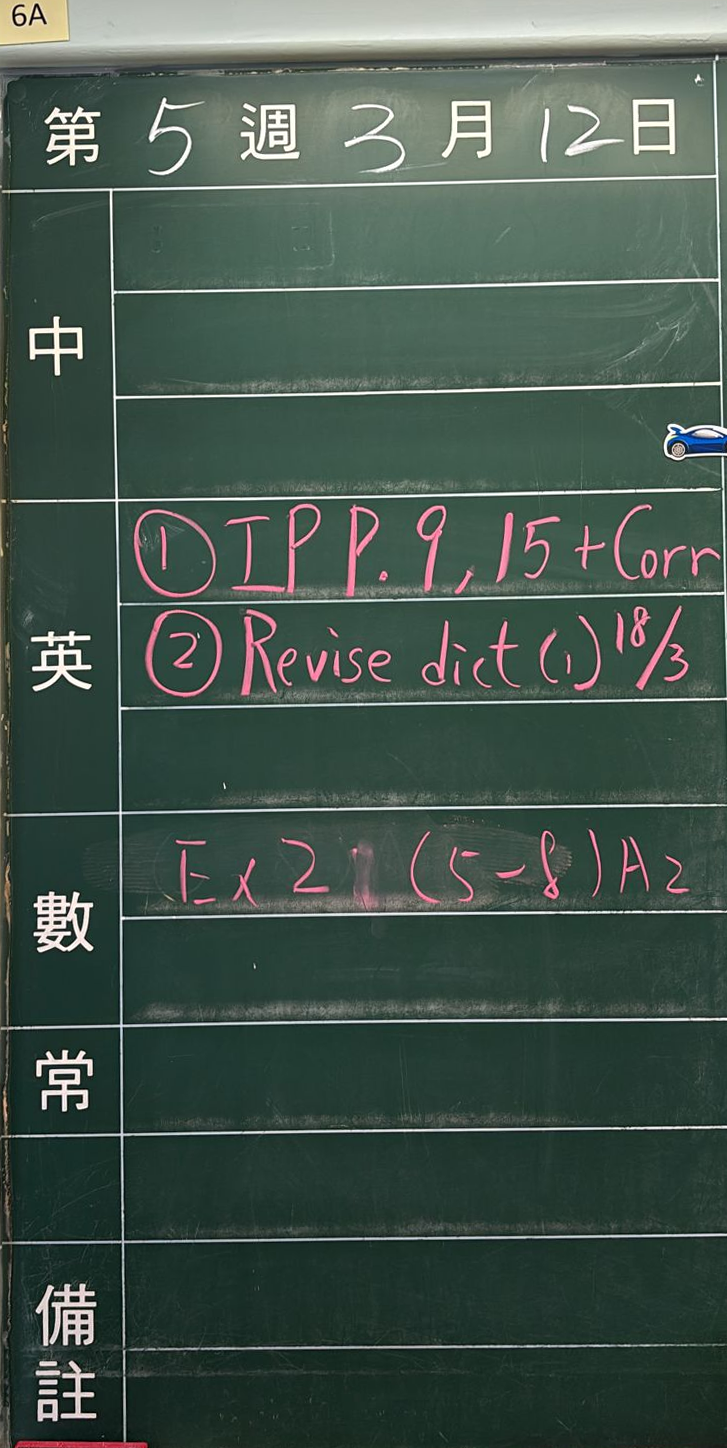 6A
第 5 週 3 月 12 日
中
英
① IP P. 9, 15 + Corr
② Revise dict (1) 18/3
數
Ex 21 (5-8) A2
常
備註